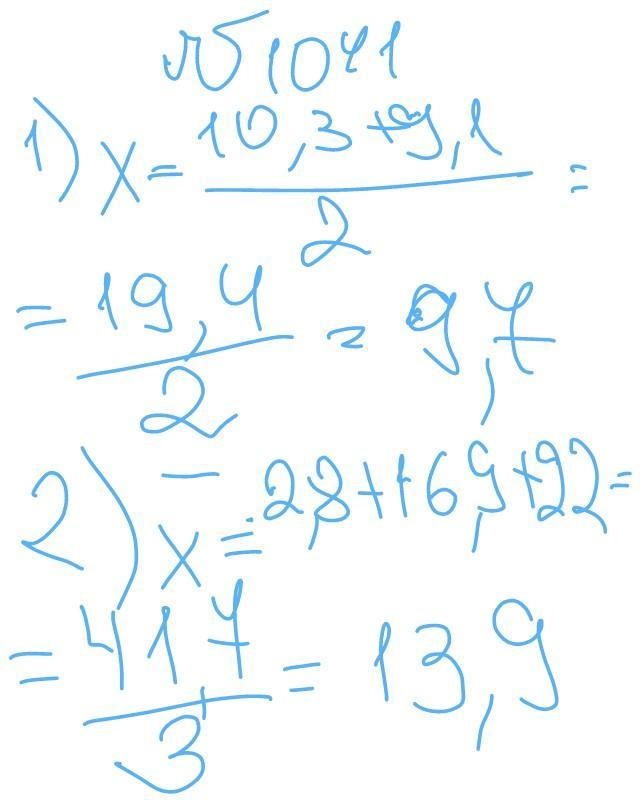 №1041
1) x = 10,3+9,1 =
2
= 19,4 = 9,7
2
2) x̄ = 2,8+16,9+22 =
= 41,7 = 13,9
3